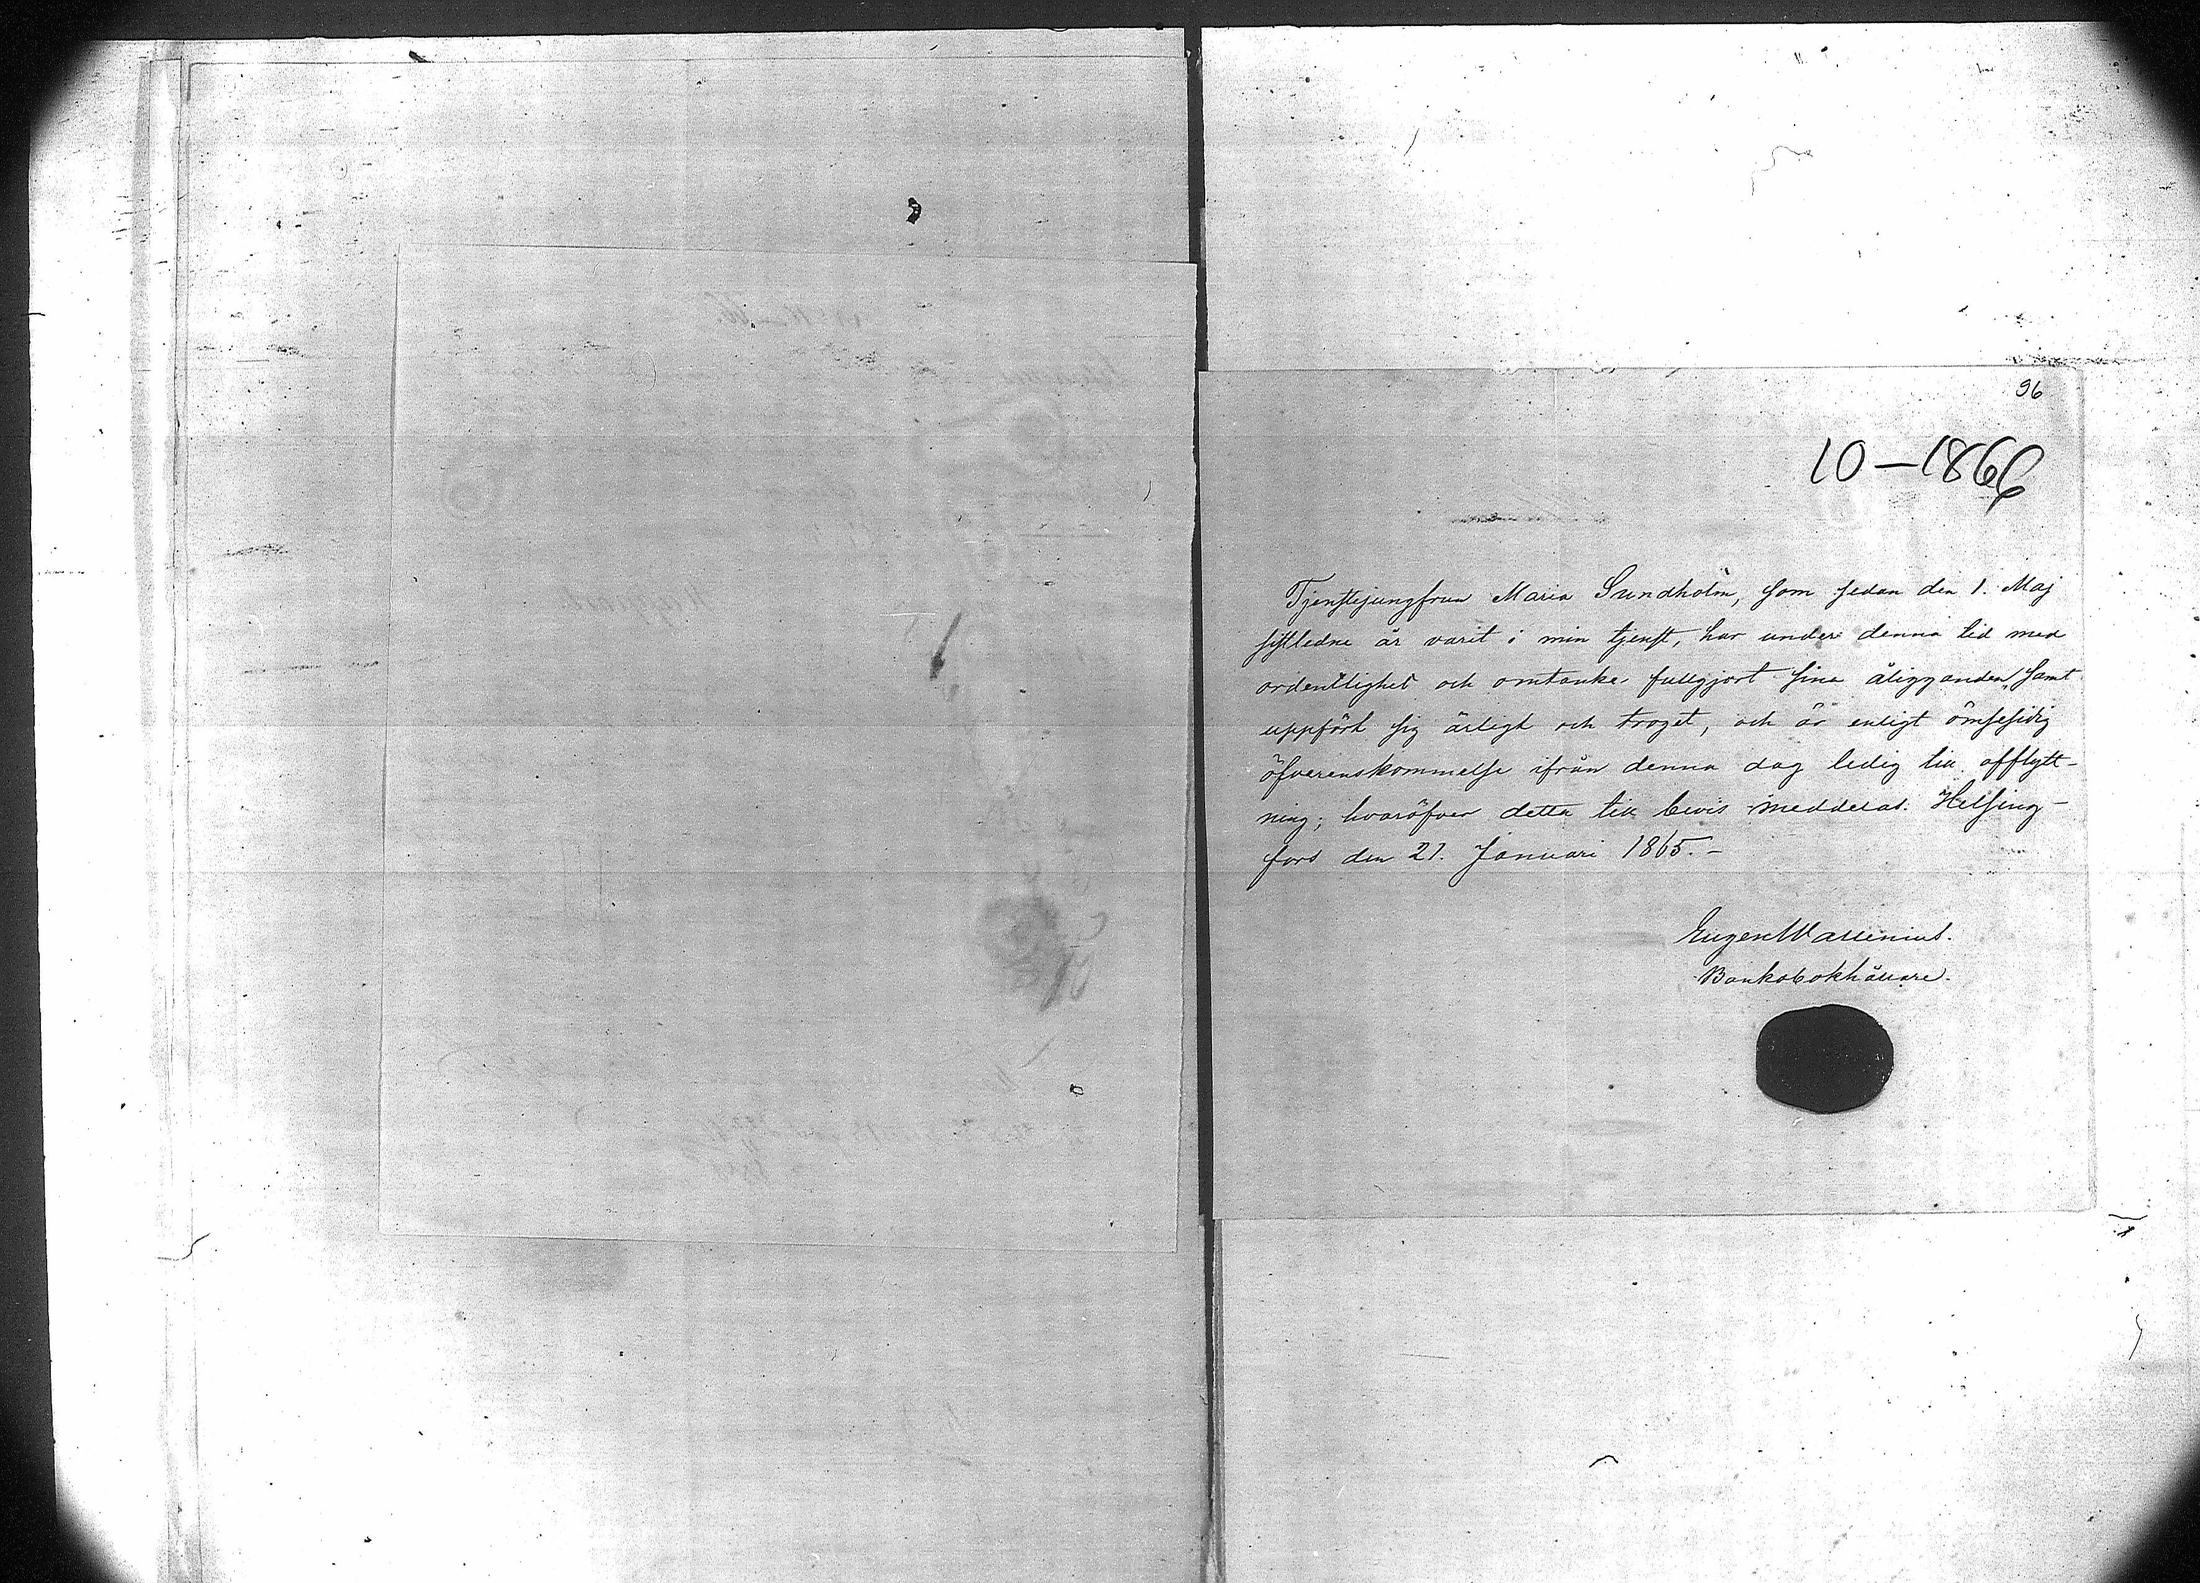 96
10-1866
Tjenstejungfrun Maria Sundholm, som sedan den 1. Maj
sistledne år varit i min tjenst, har under denna tid med
ordentlighet och omtanke fullgjort sina åligganden, samt
uppfört sig ärligt och troget, och är enligt ömsesidig
öfverenskommelse ifrån denna dag ledig till afflytt-
ning; hvaröfver detta till bevis meddelas. Helsing-
fors den 21. Januari 1865.-
Eugen Wallenius.
Bankobokhållare.